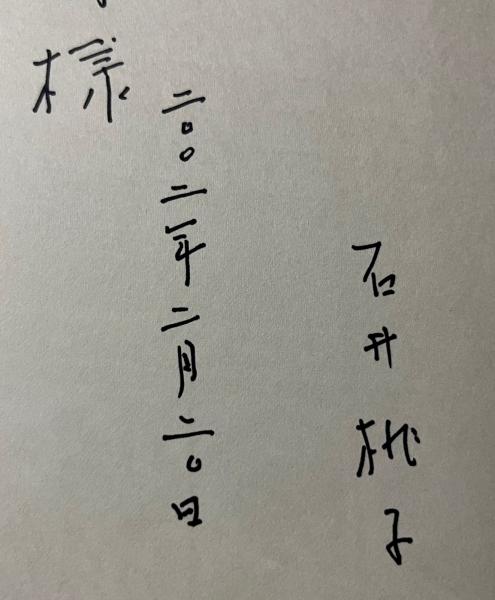 石井桃子
二〇〇二年二月二〇日
様